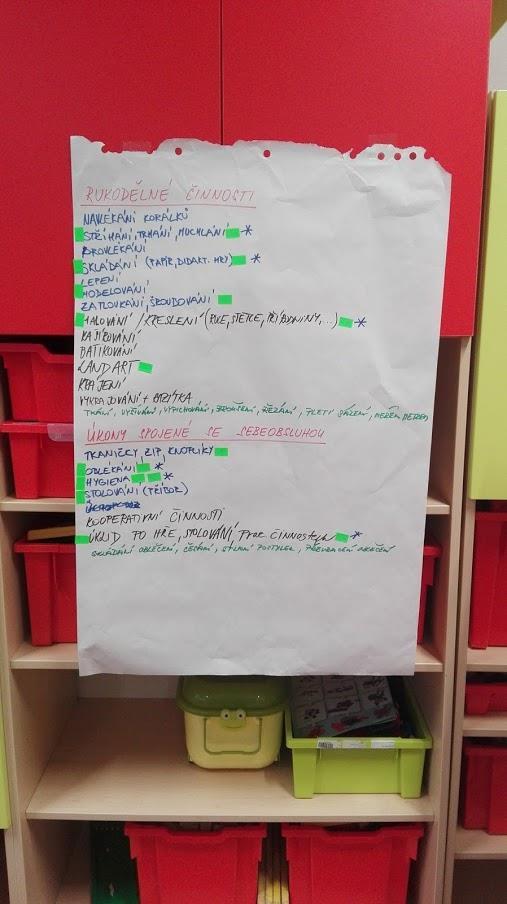 RUKODĚLNÉ ČINNOSTI
NAVLÉKÁNÍ KORÁLKŮ
STŘÍHÁNÍ, TRHÁNÍ, MUCHLÁNÍ *
PROVLÉKÁNÍ
SKLÁDÁNÍ (PAPÍR, DIDAKT. HRY) *
LEPENÍ
MODELOVÁNÍ
ZATLOUKÁNÍ, ŠROUBOVÁNÍ
MALOVÁNÍ / KRESLENÍ (RUCE, ŠTĚTCE, PŘÍRODNINY, ...) *
KAŠÍROVÁNÍ
BATIKOVÁNÍ
LANDART
KRÁJENÍ
VYKRAJOVÁNÍ + RAZÍTKA
TKANÍ, VYŠÍVÁNÍ, VYPICHOVÁNÍ, BROUŠENÍ, ŘEZÁNÍ, PLETÍ SÁZENÍ,
ÚKONY SPOJENÉ SE SEBEOBSLUHOU
TKANIČKY, ZIP, KNOFLÍKY
OBLÉKÁNÍ *
HYGIENA *
STOLOVÁNÍ (PŘÍBOR)
KOOPERATIVNÍ ČINNOSTI
ÚKLID PO HŘE, STOLOVÁNÍ, prac. činnostech *
SKLÁDÁNÍ OBLEČENÍ, ČESÁNÍ, STLANÍ POSTÝLEK, PŘEVRACENÍ OBLEČENÍ